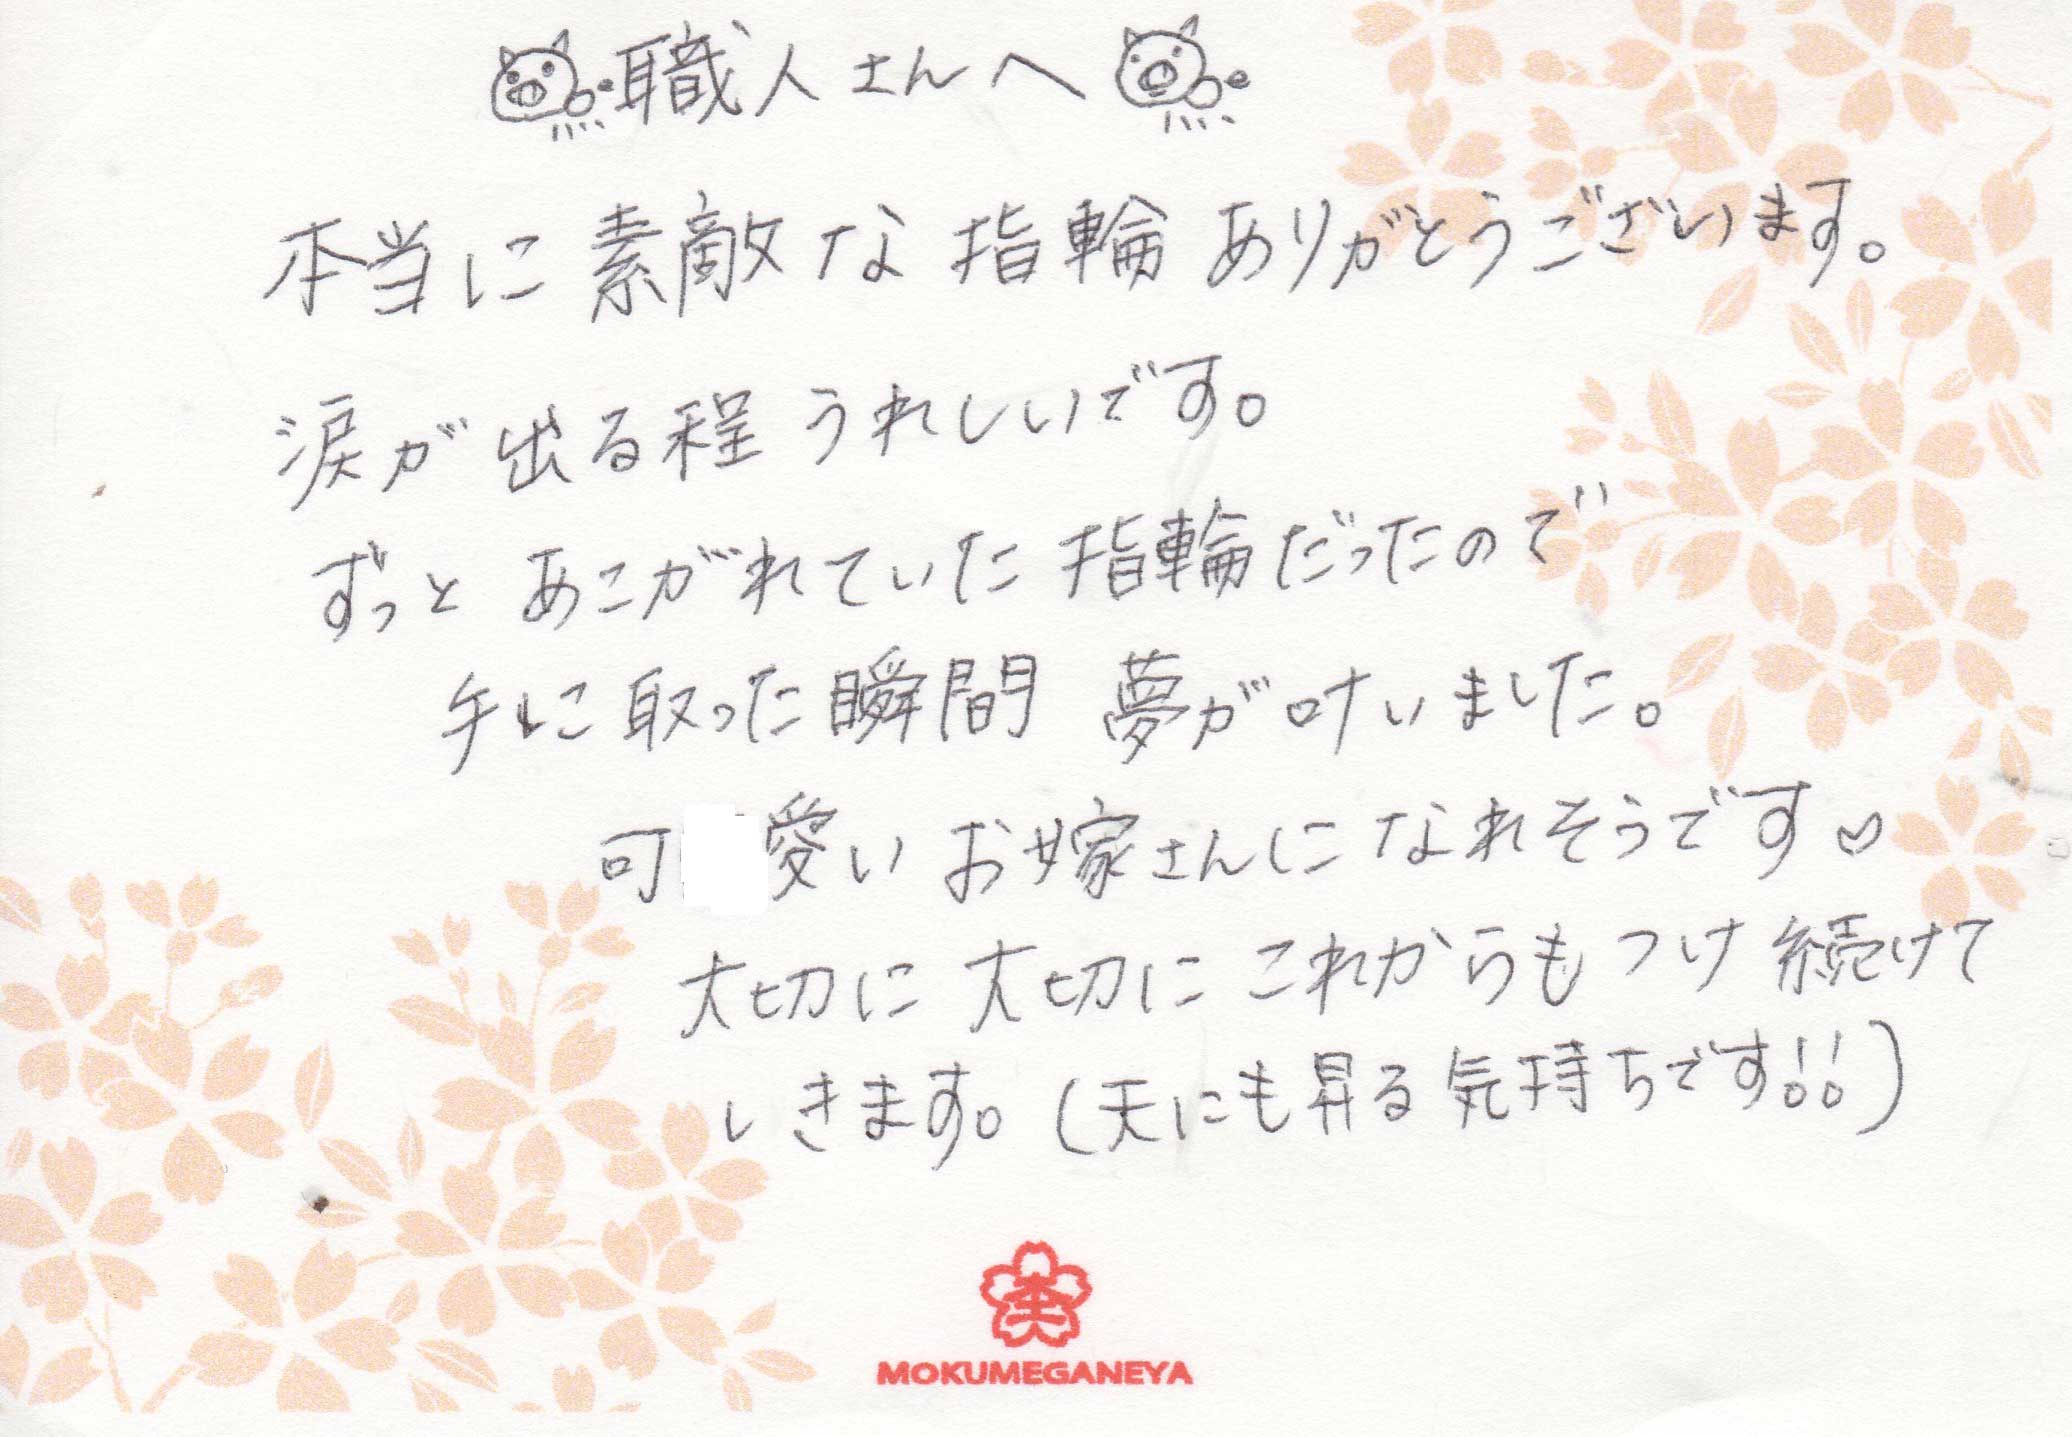 職人さんへ
本当に素敵な指輪ありがとうございます。
涙が出る程うれしいです。
ずっとあこがれていた指輪だったので
手に取った瞬間 夢が叶いました。
可愛いお嫁さんになれそうです♡
大切に大切にこれからもつけ続けて
いきます。(天にも昇る気持ちです!!)
MOKUMEGANEYA